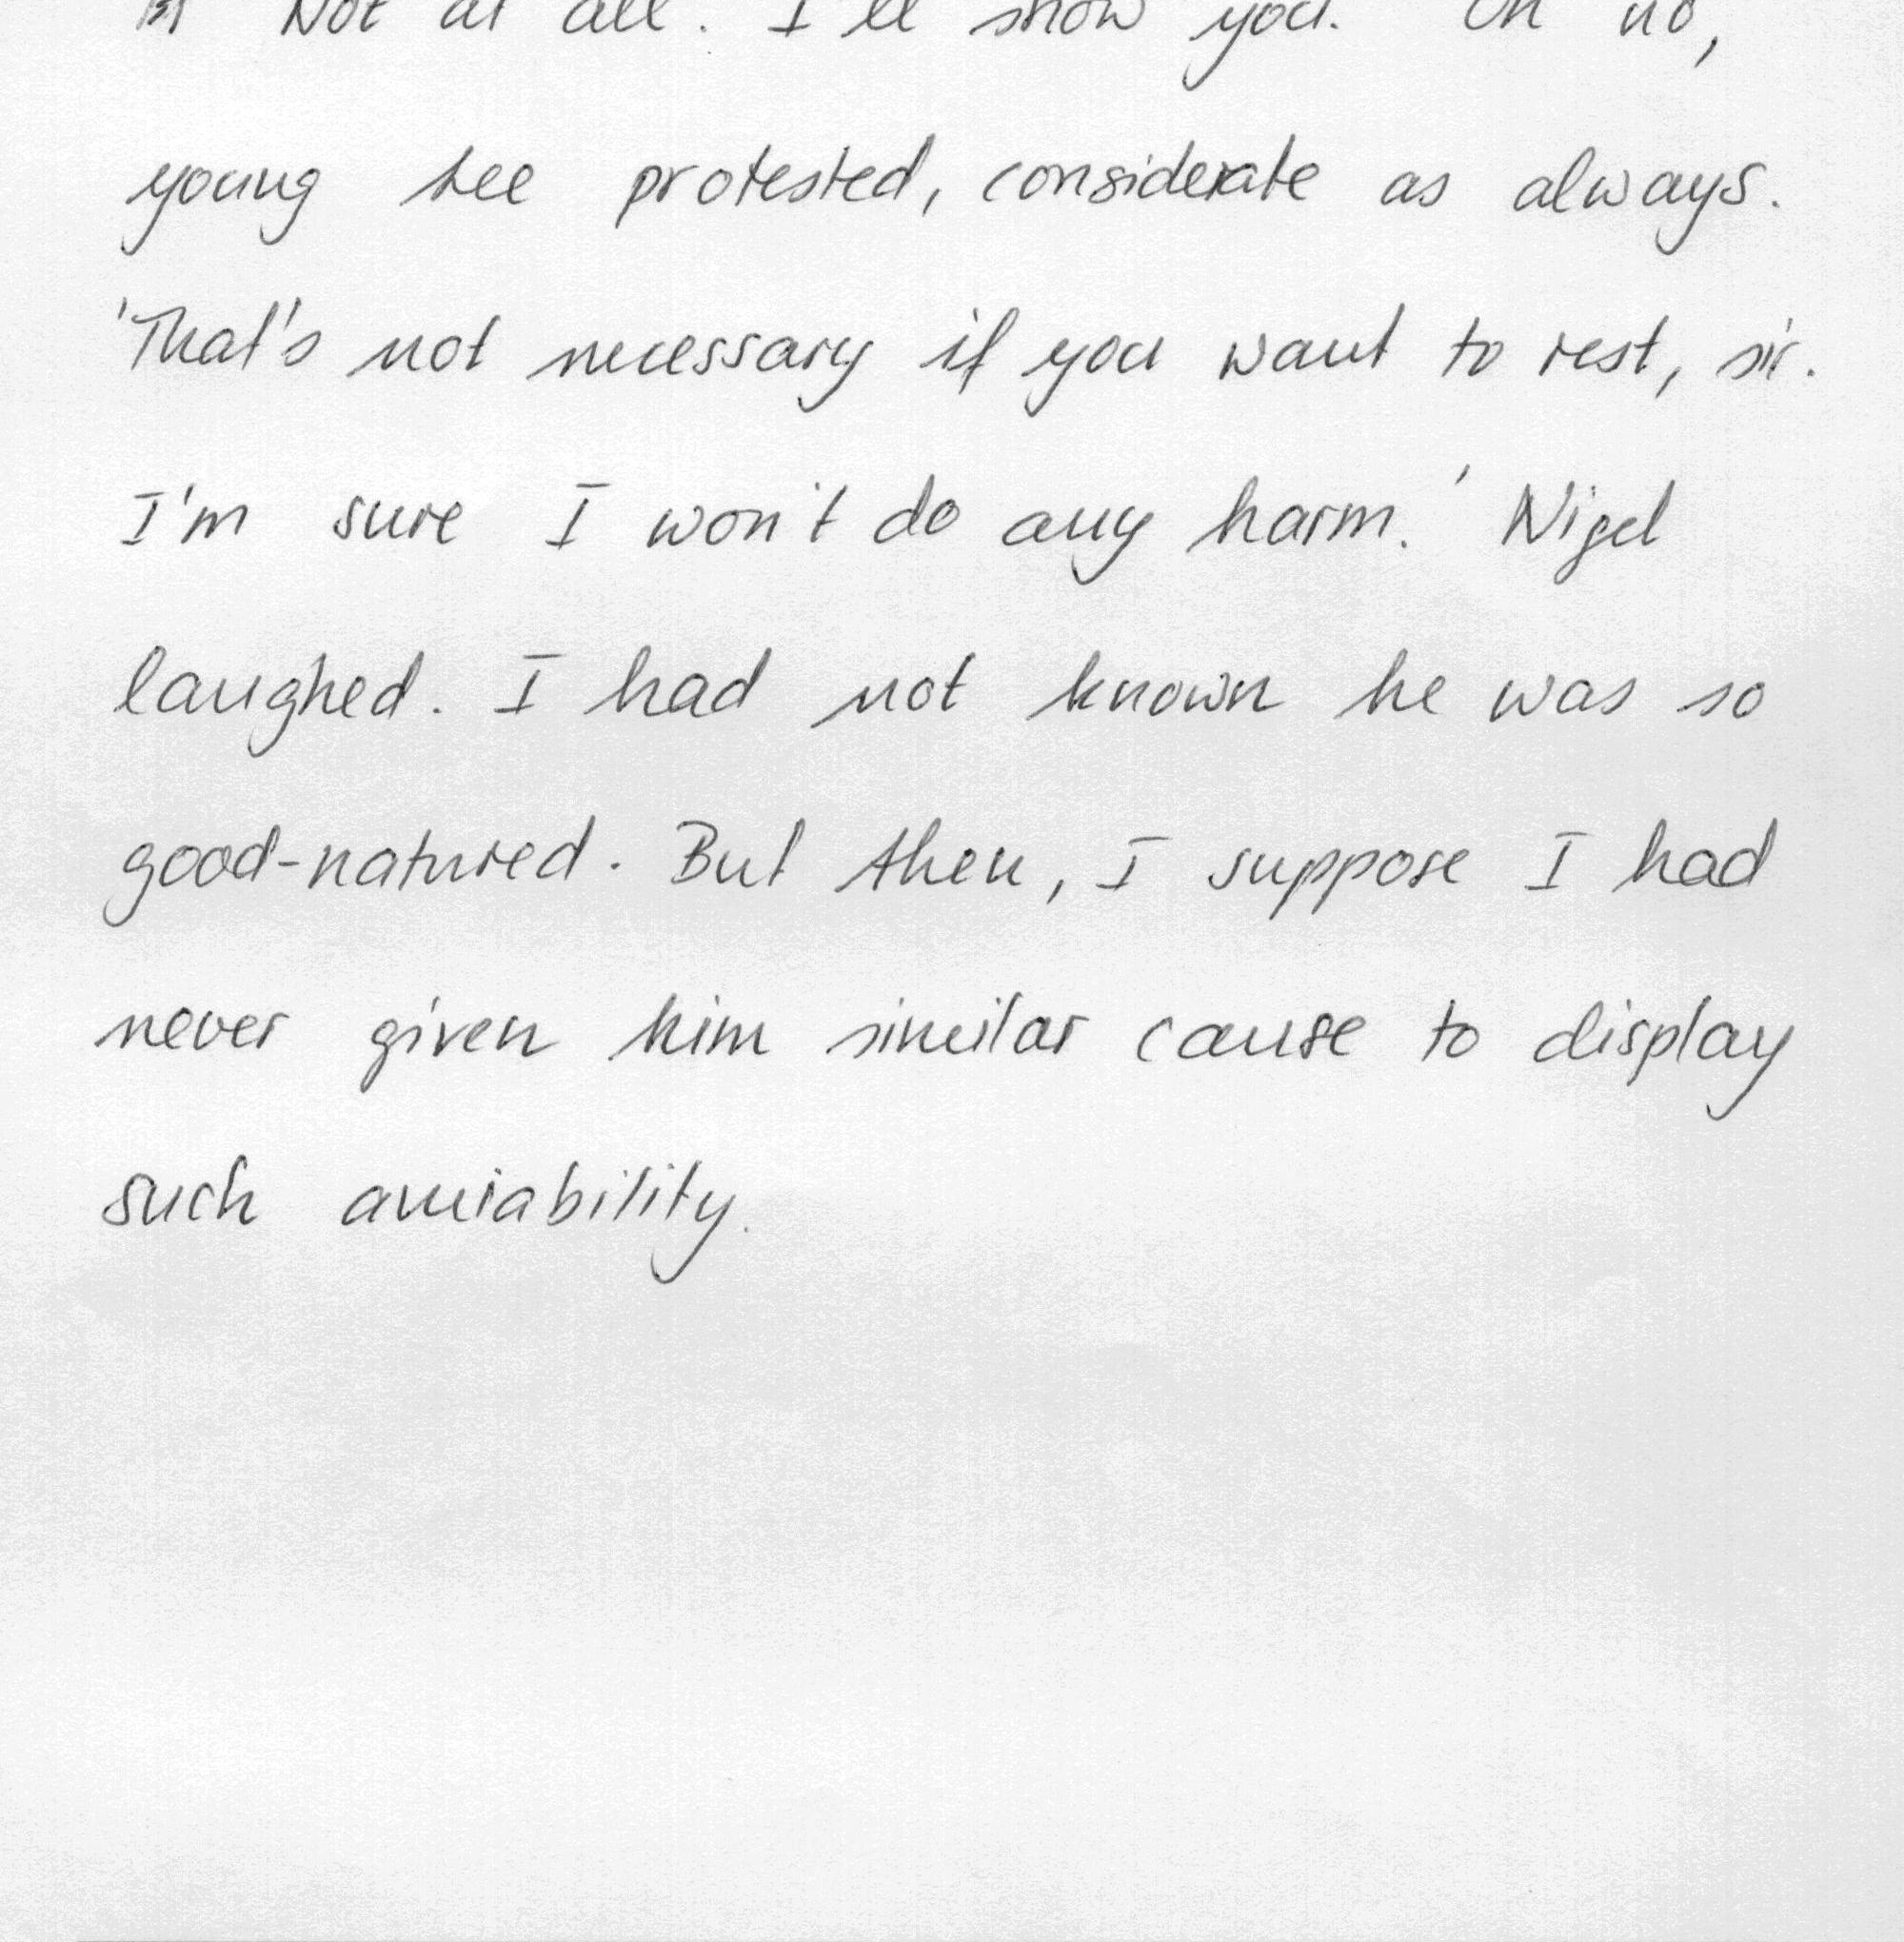 Not at all. I'll show you. Oh no,
young Lee protested, considerate as always.
'That's not necessary if you want to rest, sir.
I'm sure I won't do any harm.' Nigel
laughed. I had not known he was so
good-natured. But then, I suppose I had
never given him similar cause to display
such amiability.